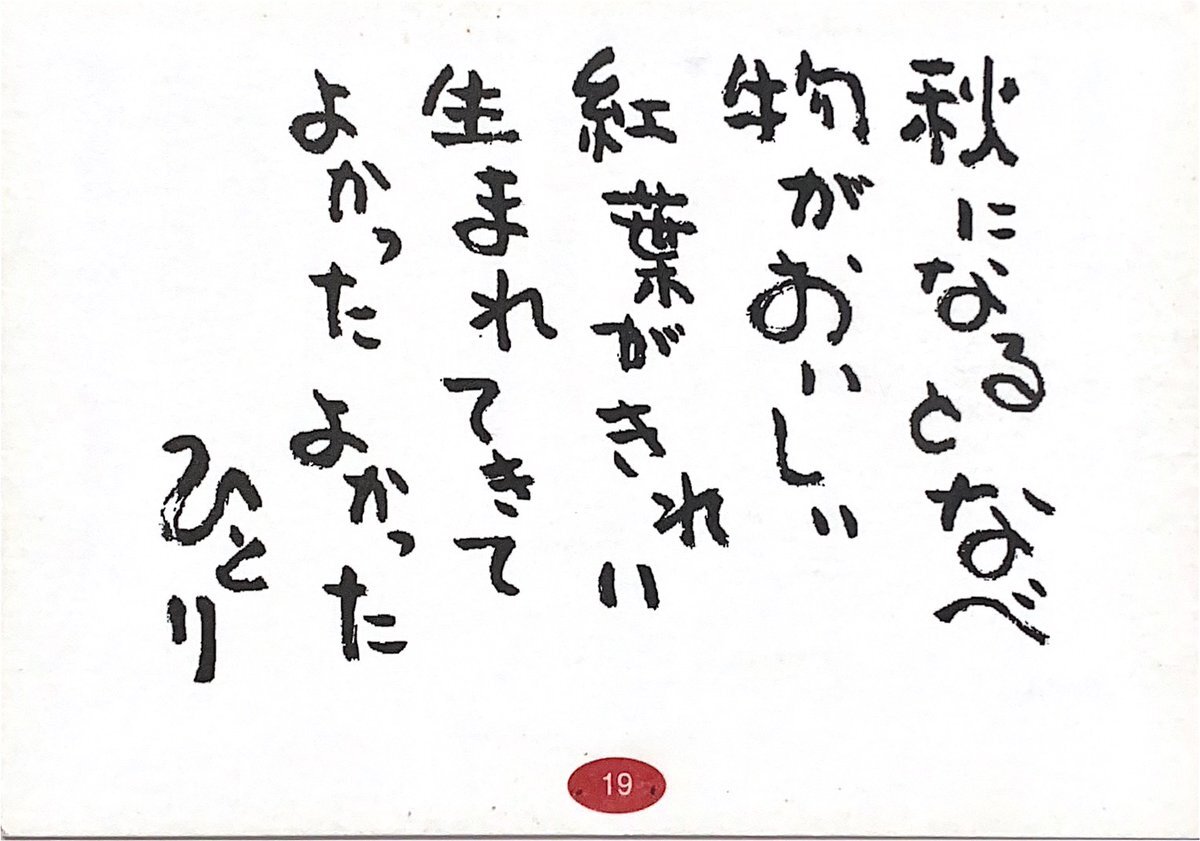 秋になるとなべ
物がおいしい
紅葉がきれい
生まれてきて
よかったよかった
ひとり
19